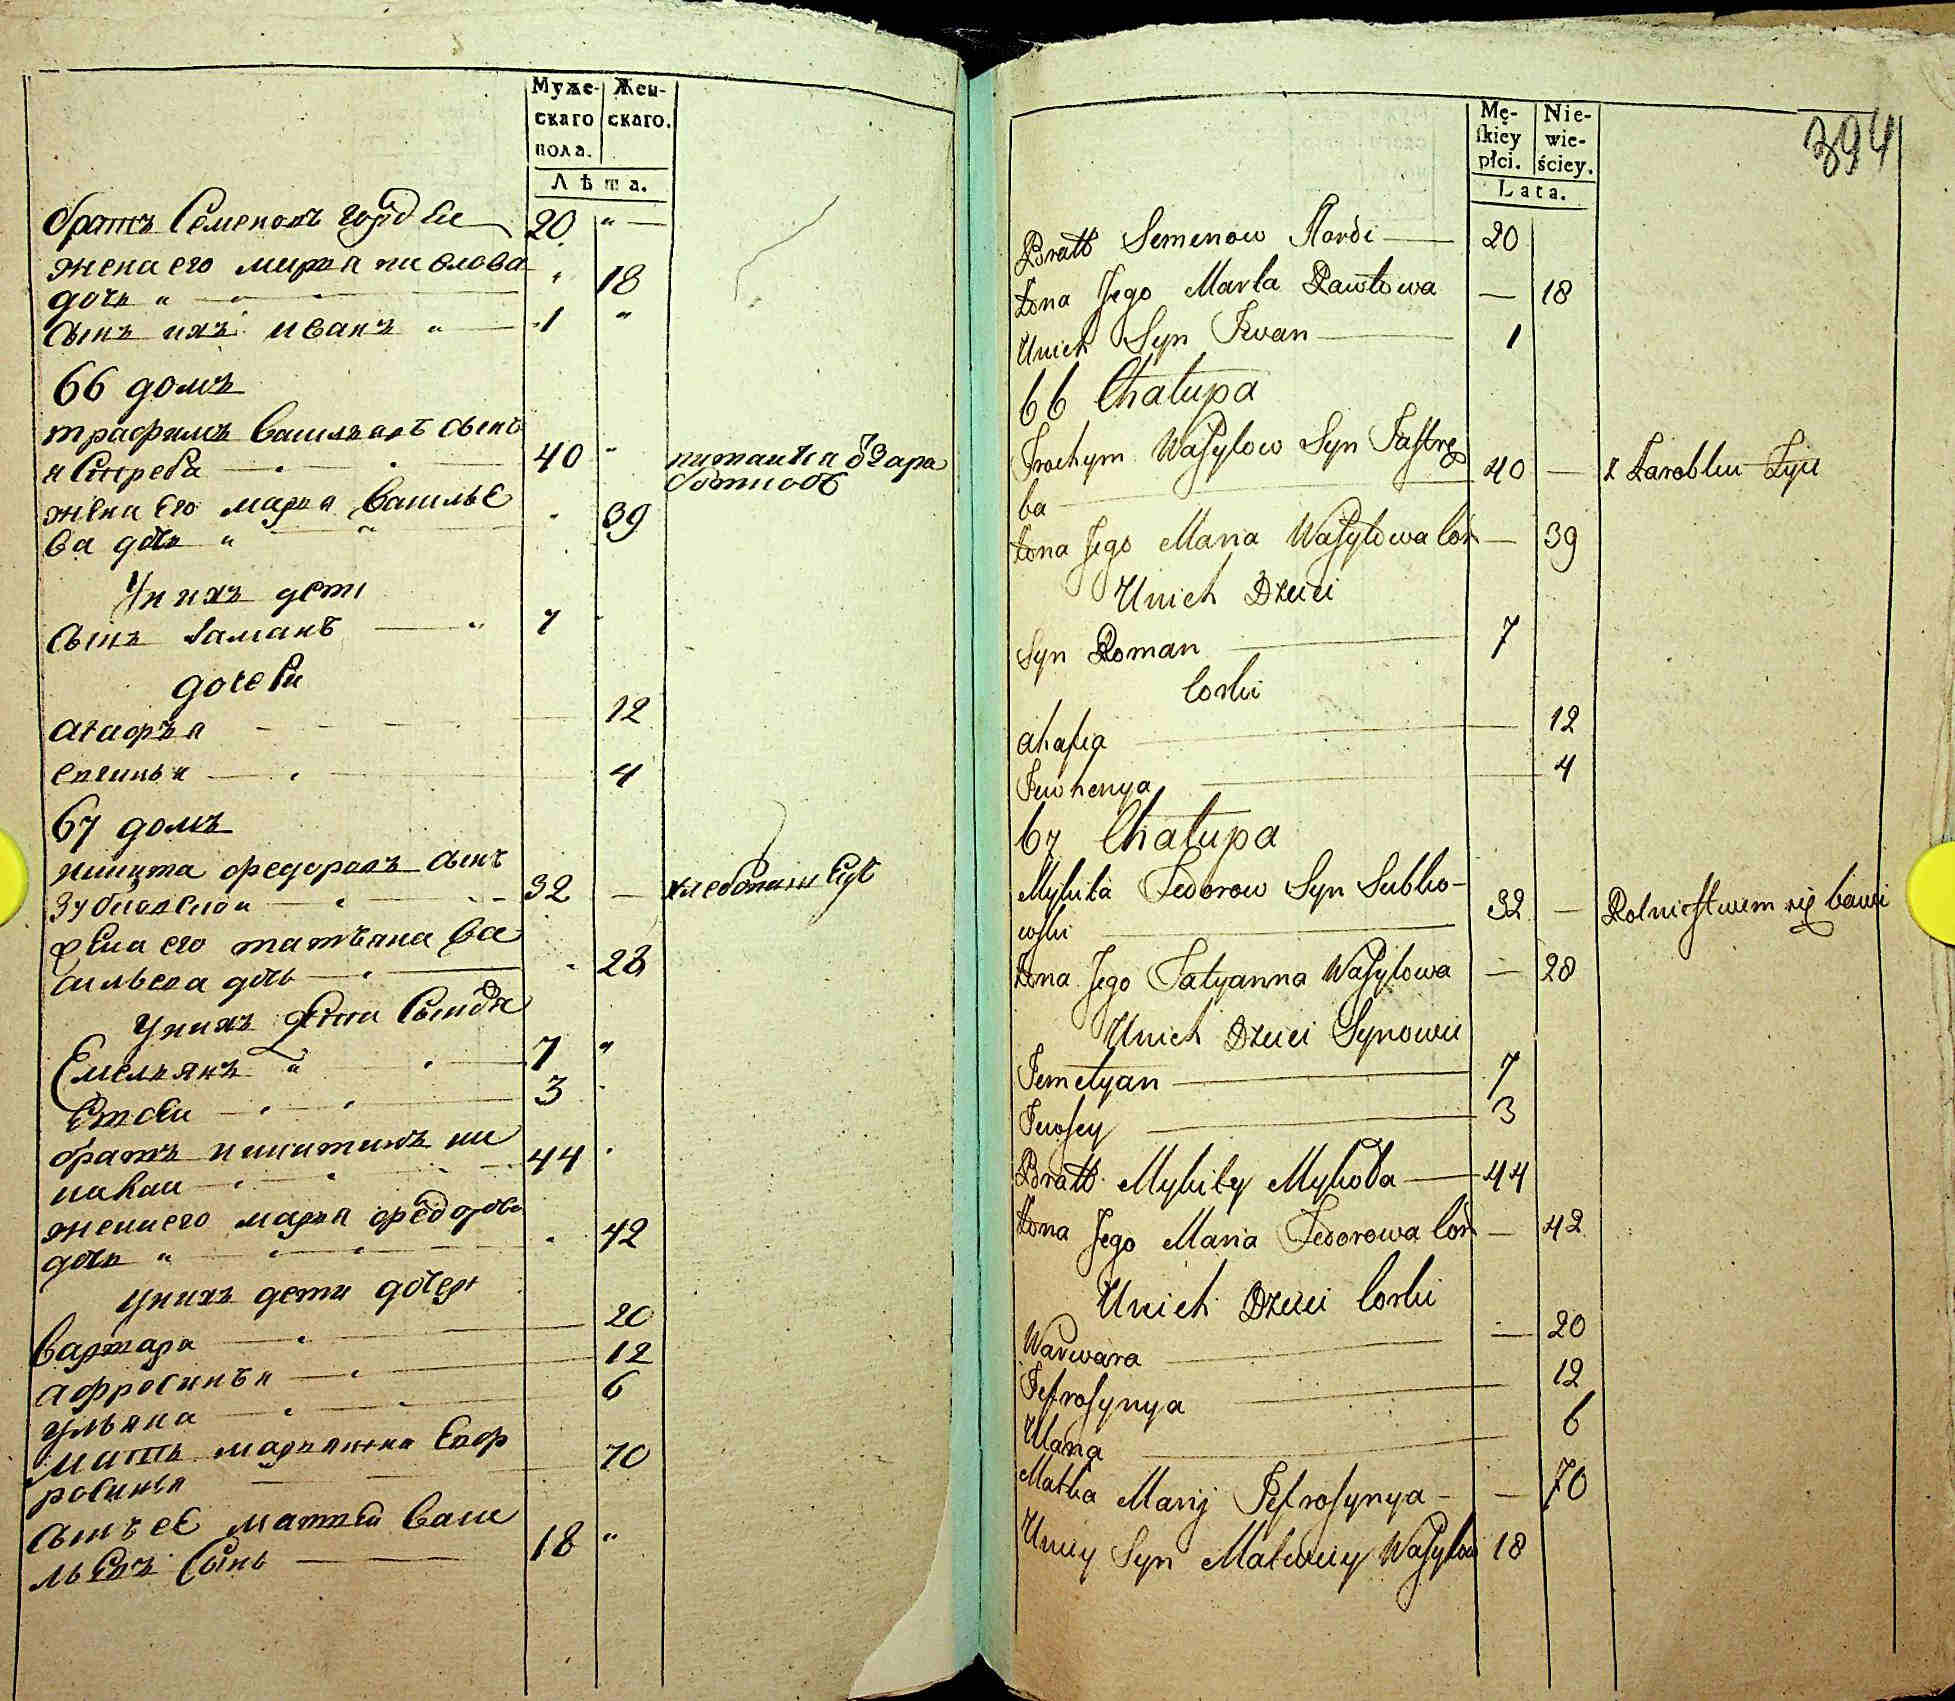 Муже-
скаго
пола.
Жен-
скаго.
Лѣта.
братъ Семеновъ гордеи 20 "
жена его марфа павлова
дочь " 18
сынъ ихъ иванъ " 1 "
66 домъ
трафимъ васильевъ сынъ
ястреба 40 " питаится ѿ зара
ботковъ
жена его марья василье
ва дочь " 39
У нихъ дети
сынъ раманъ 7
дочери
агафья 12
евгинья 4
67 домъ
никита федоровъ сынъ
зубковскои 32 — хлебопашецъ
жена его татьяна ва
сильева дочь 28
У нихъ дети сыновя
Емельянъ " 7 "
Евсеи 3
братъ никитинъ ни
калаи 44
жена его марья федорова
дочь " 42
у нихъ дети дочери
варвара 20
афросинья 12
ульяна 6
мать марьянина евф
росинья 70
сынъ ее матвей васи
льевъ сынъ 18 "
394
Mę-
ſkiey
płci.
Nie-
wie-
ściey.
Lata.
Bratt Semenow Hordi 20
Żona Jego Marfa Pawłowa — 18
Unich Syn Iwan 1
66 Chałupa
Trochym Wasylow Syn Jastrę
ba 40 — z Zarobku Żyie
Żona Jego Maria Wasylowa Cor — 39
Unich Dzieci
Syn Roman 7
Corki
ahafia 12
Iewhenya 4
67 Chałupa
Mykita Fedorow Syn Subko-
wski 32 — Rolnictwem się bawi
Żona Jego Tatyanna Wasylowa — 28
Unich Dzieci Synowie
Jemelyan 7
Iewsey 3
Bratt Mykity Mykoła 44
Żona Jego Maria Fedorowa Cor — 42
Unich Dzieci Corki
Warwara — 20
Jefrosynya 12
Ulana 6
Matka Marij Jefrosynya — 70
Uniey Syn Matwiey Wasylow 18